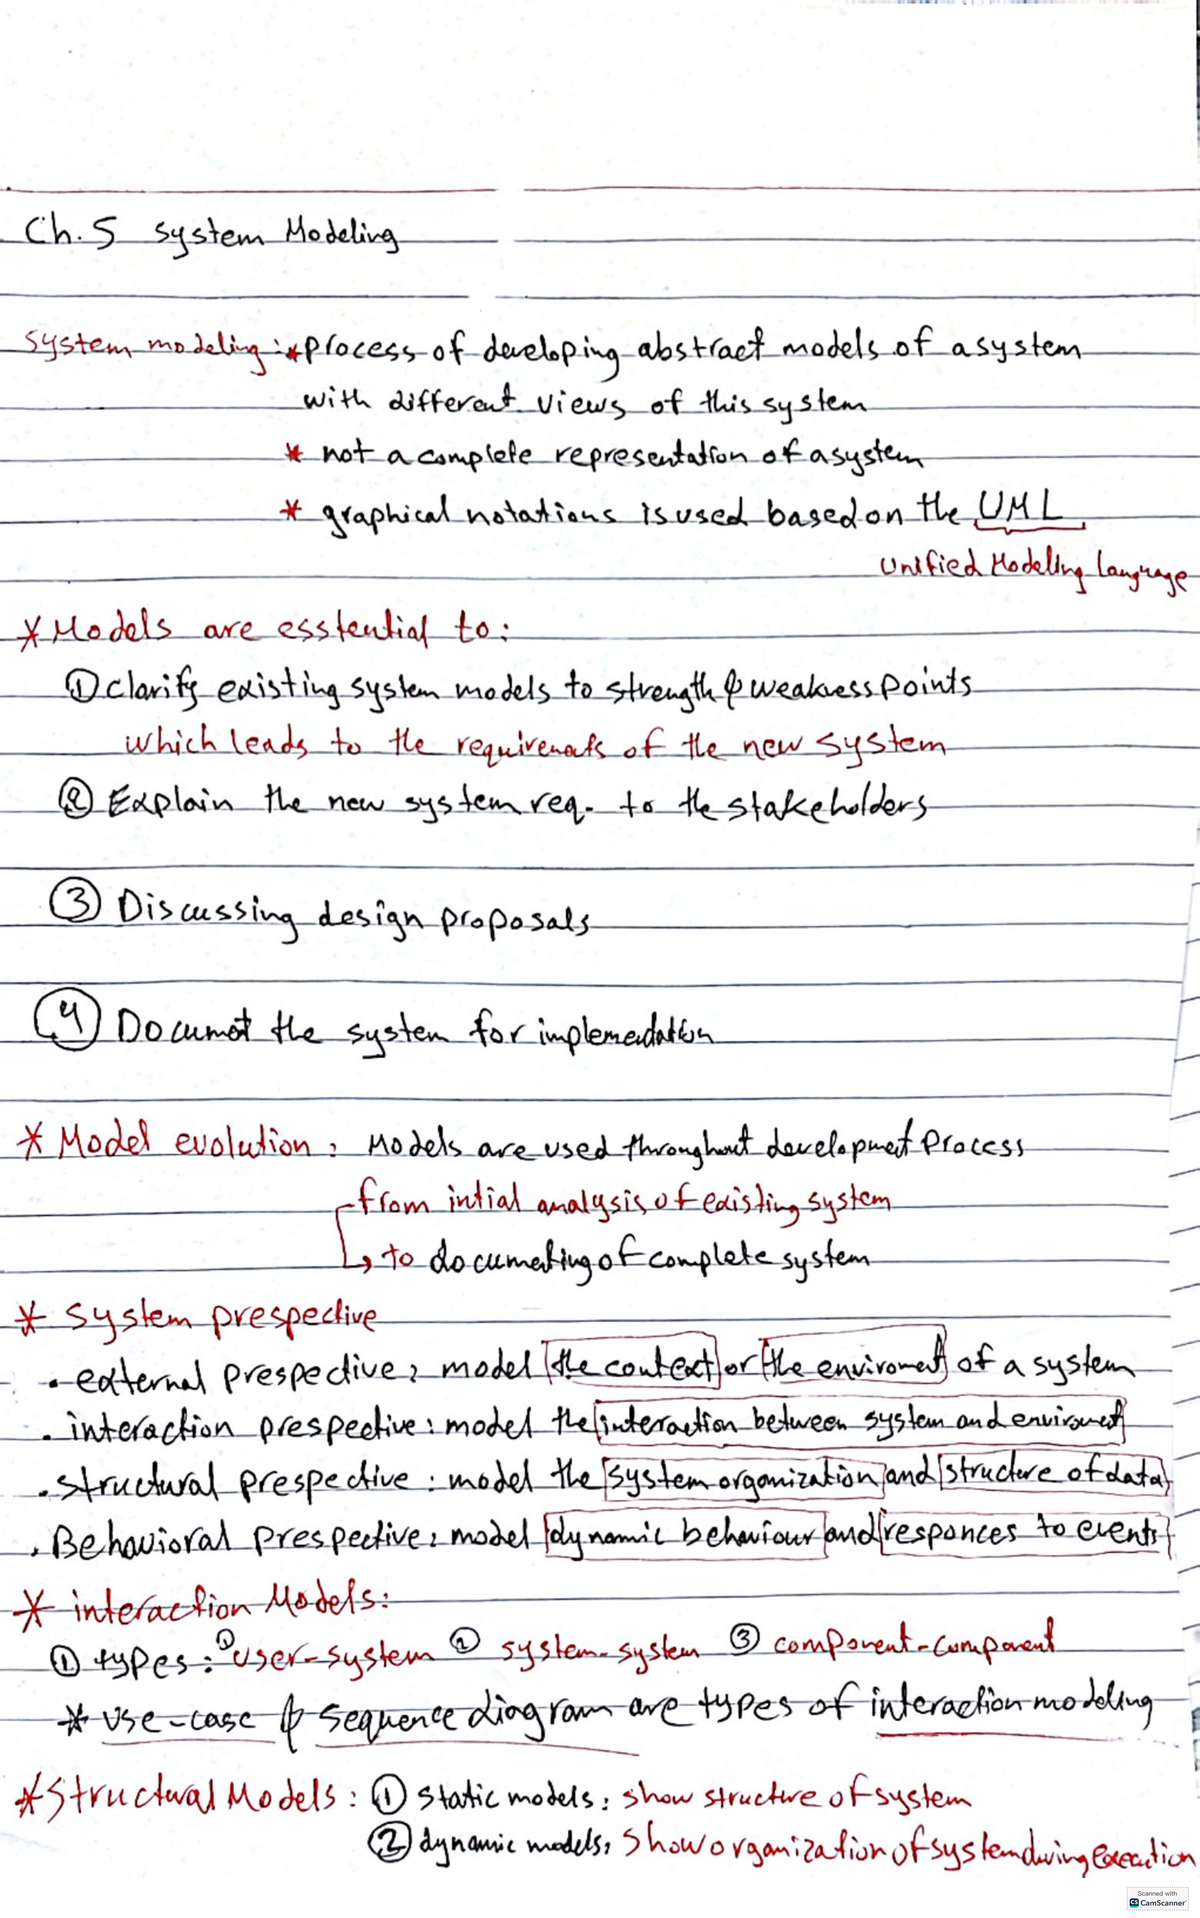 Ch.5 system Modeling
system modeling : * process of developing abstract models of a system
with different views of this system
* not a complete representation of a system
* graphical notations is used based on the UML
Unified Modeling Language
* Models are esstential to :
① clarify existing system models to strength & weakness points
which leads to the requirements of the new system
② Explain the new system req. to the stakeholders
③ Discussing design proposals
④ Document the system for implementation
* Model evolution : Models are used throughout development process
from intial analysis of existing system
↳ to documenting of complete system
* System prespective
• external prespective : model the context or the enviroment of a system
• interaction prespective : model the interaction between system and enviroment
• structural prespective : model the system organization and structure of data
• Behavioral prespective : model dynamic behaviour and responces to events
* interaction Models :
① types : ① user-system ② system-system ③ component-component
* use-case & sequence diagram are types of interaction modeling
* Structural Models : ① static models : show structure of system
② dynamic models : show organization of system during execution
Scanned with
CS CamScanner